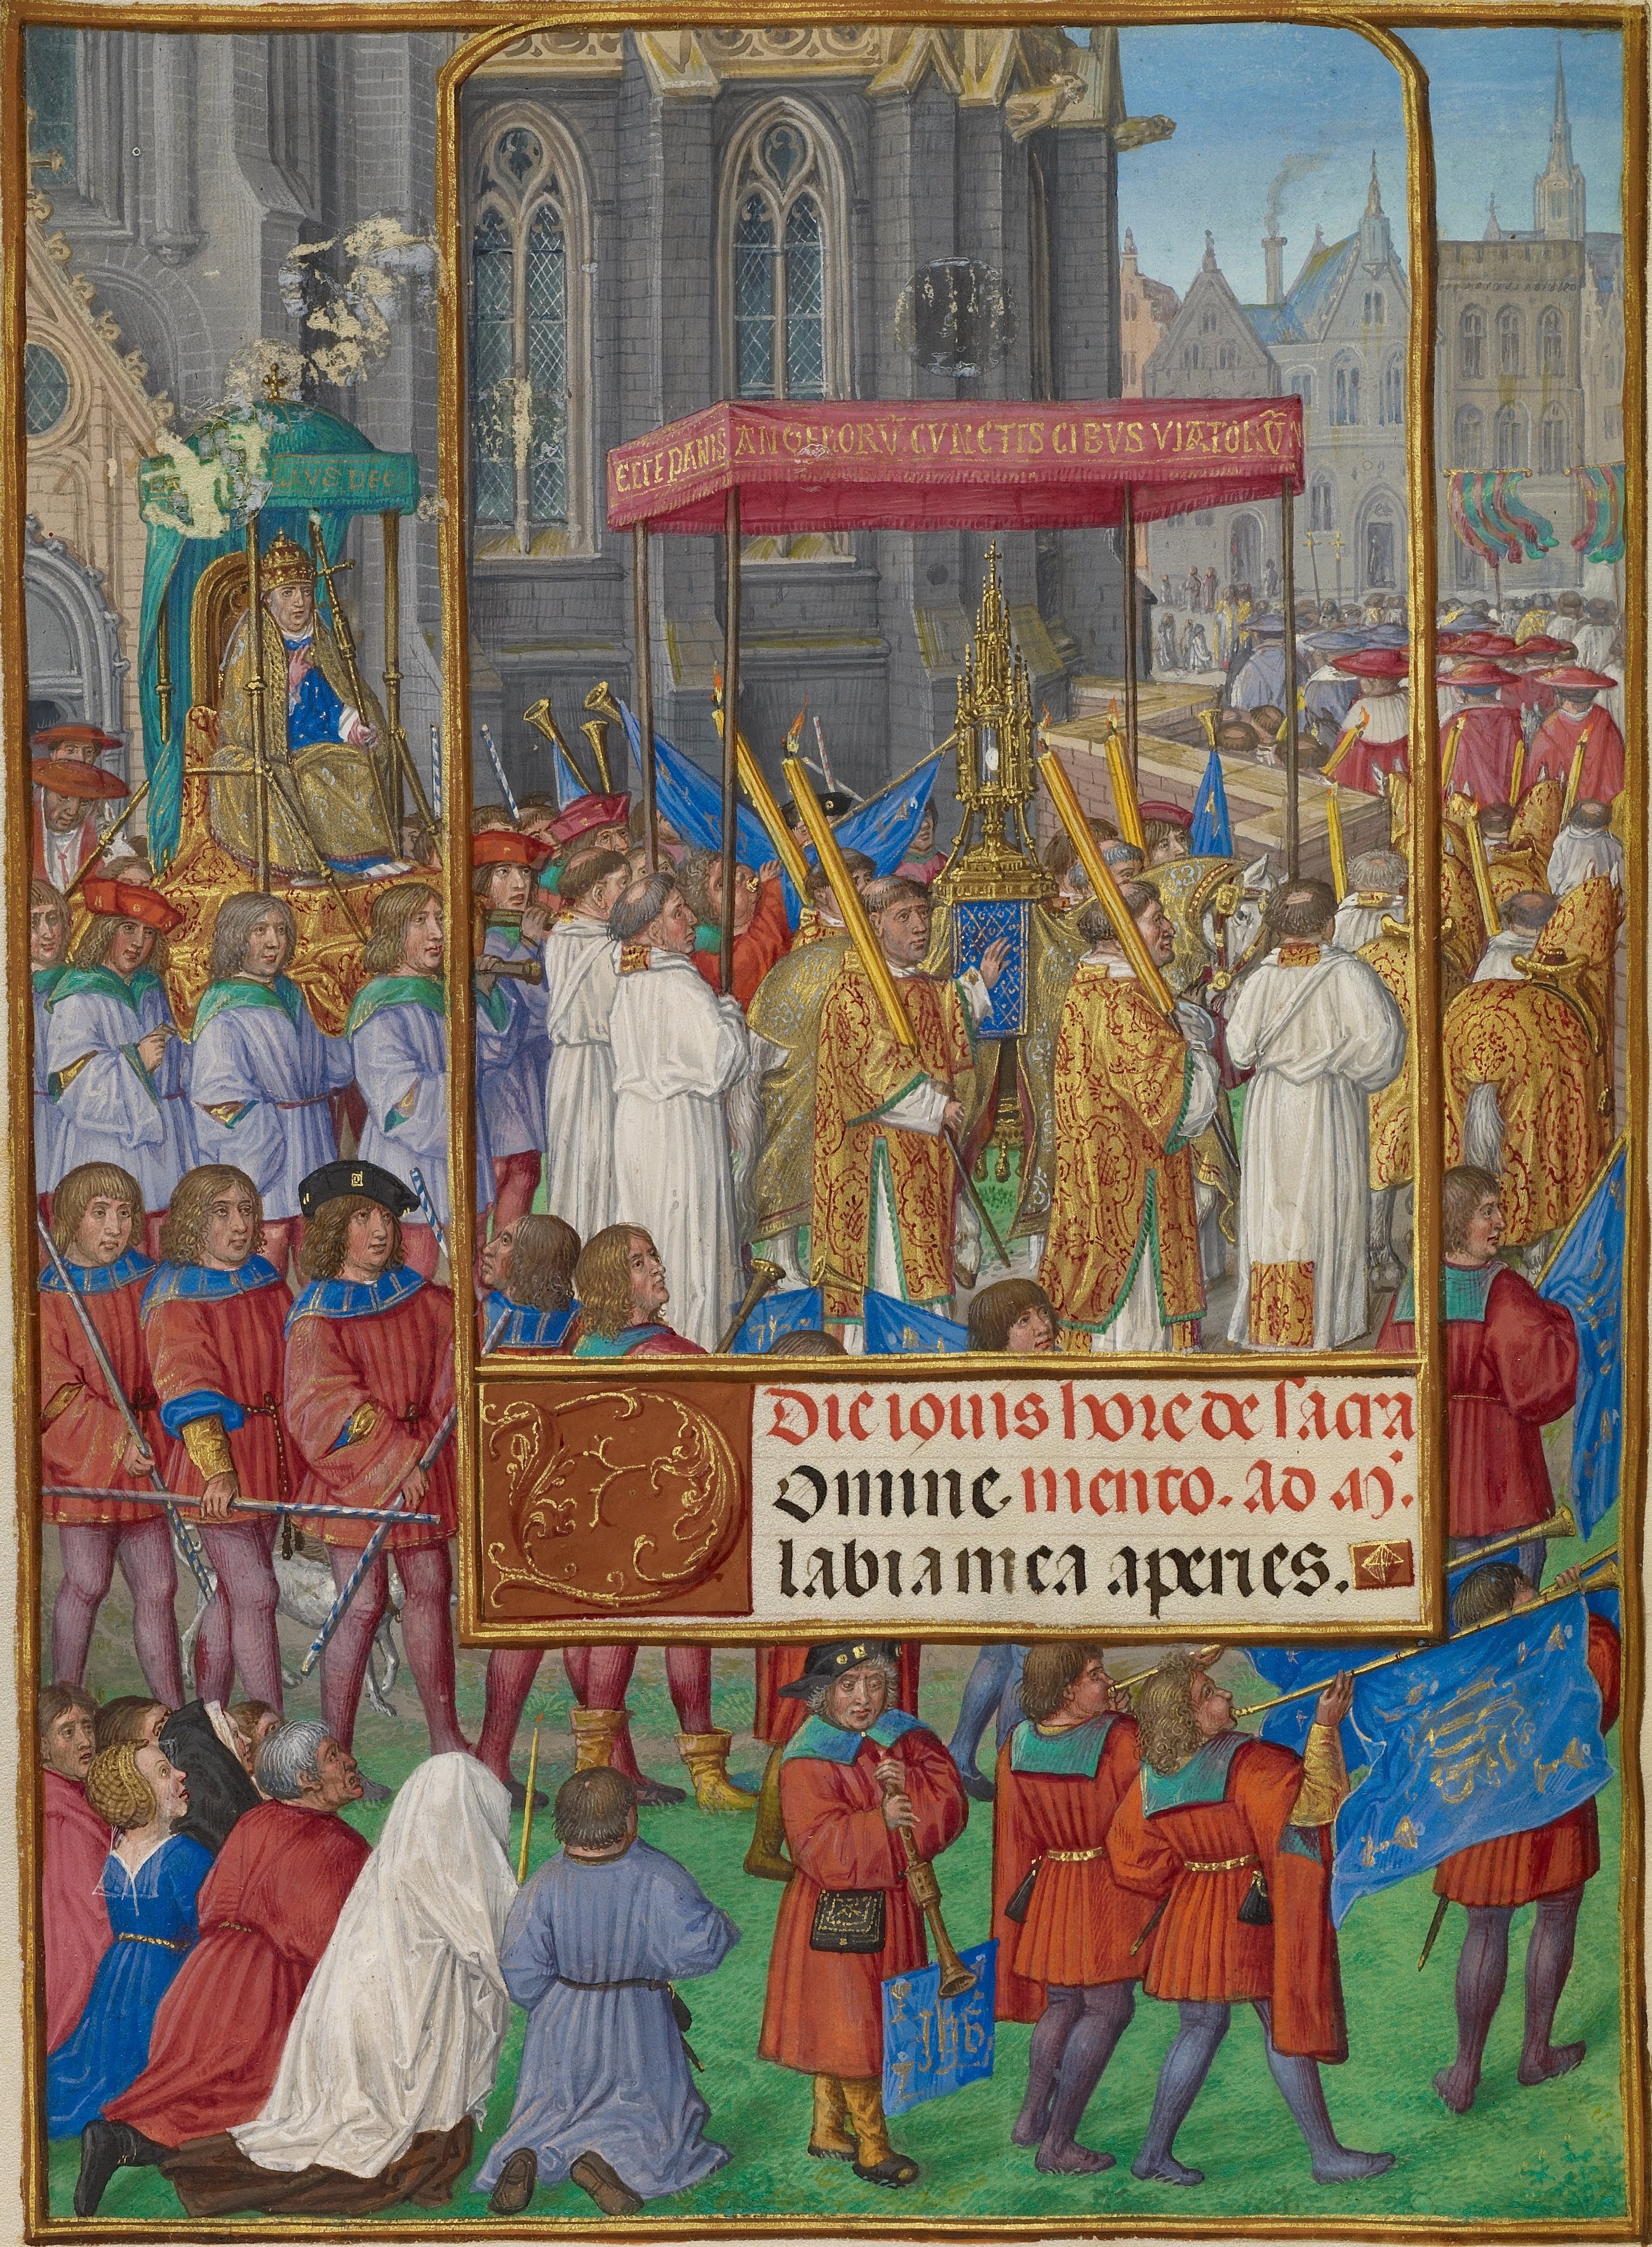 ECCE PANIS ANGELORŪ CVNCTIS CIBVS VIATORŪM
Die iouis hore de sacra
Domine mento. Ad M̕.
labia mea aperies.
ihs